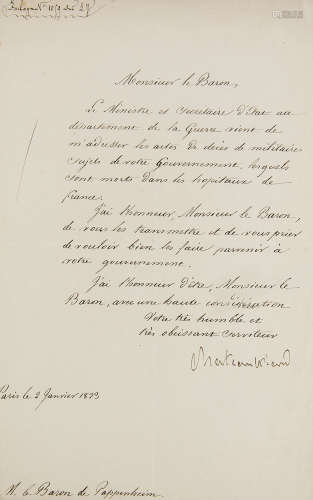 Monsieur le Baron,
Le Ministre et Secretaire d'Etat au
département de la Guerre vient de
m'adresser les actes de décès de militaires
sujets de votre Gouvernement, lesquels
sont morts dans les hopitaux de
France.
J'ai l'honneur, Monsieur le Baron,
de vous les transmettre et de vous prier
de vouloir bien les faire parvenir à
votre gouvernement.
J'ai l'honneur d'être, Monsieur le
Baron, avec une haute considération
Votre très humble et
très obéissant serviteur
Paris le 2 Janvier 1823
M. le Baron de Pappenheim.